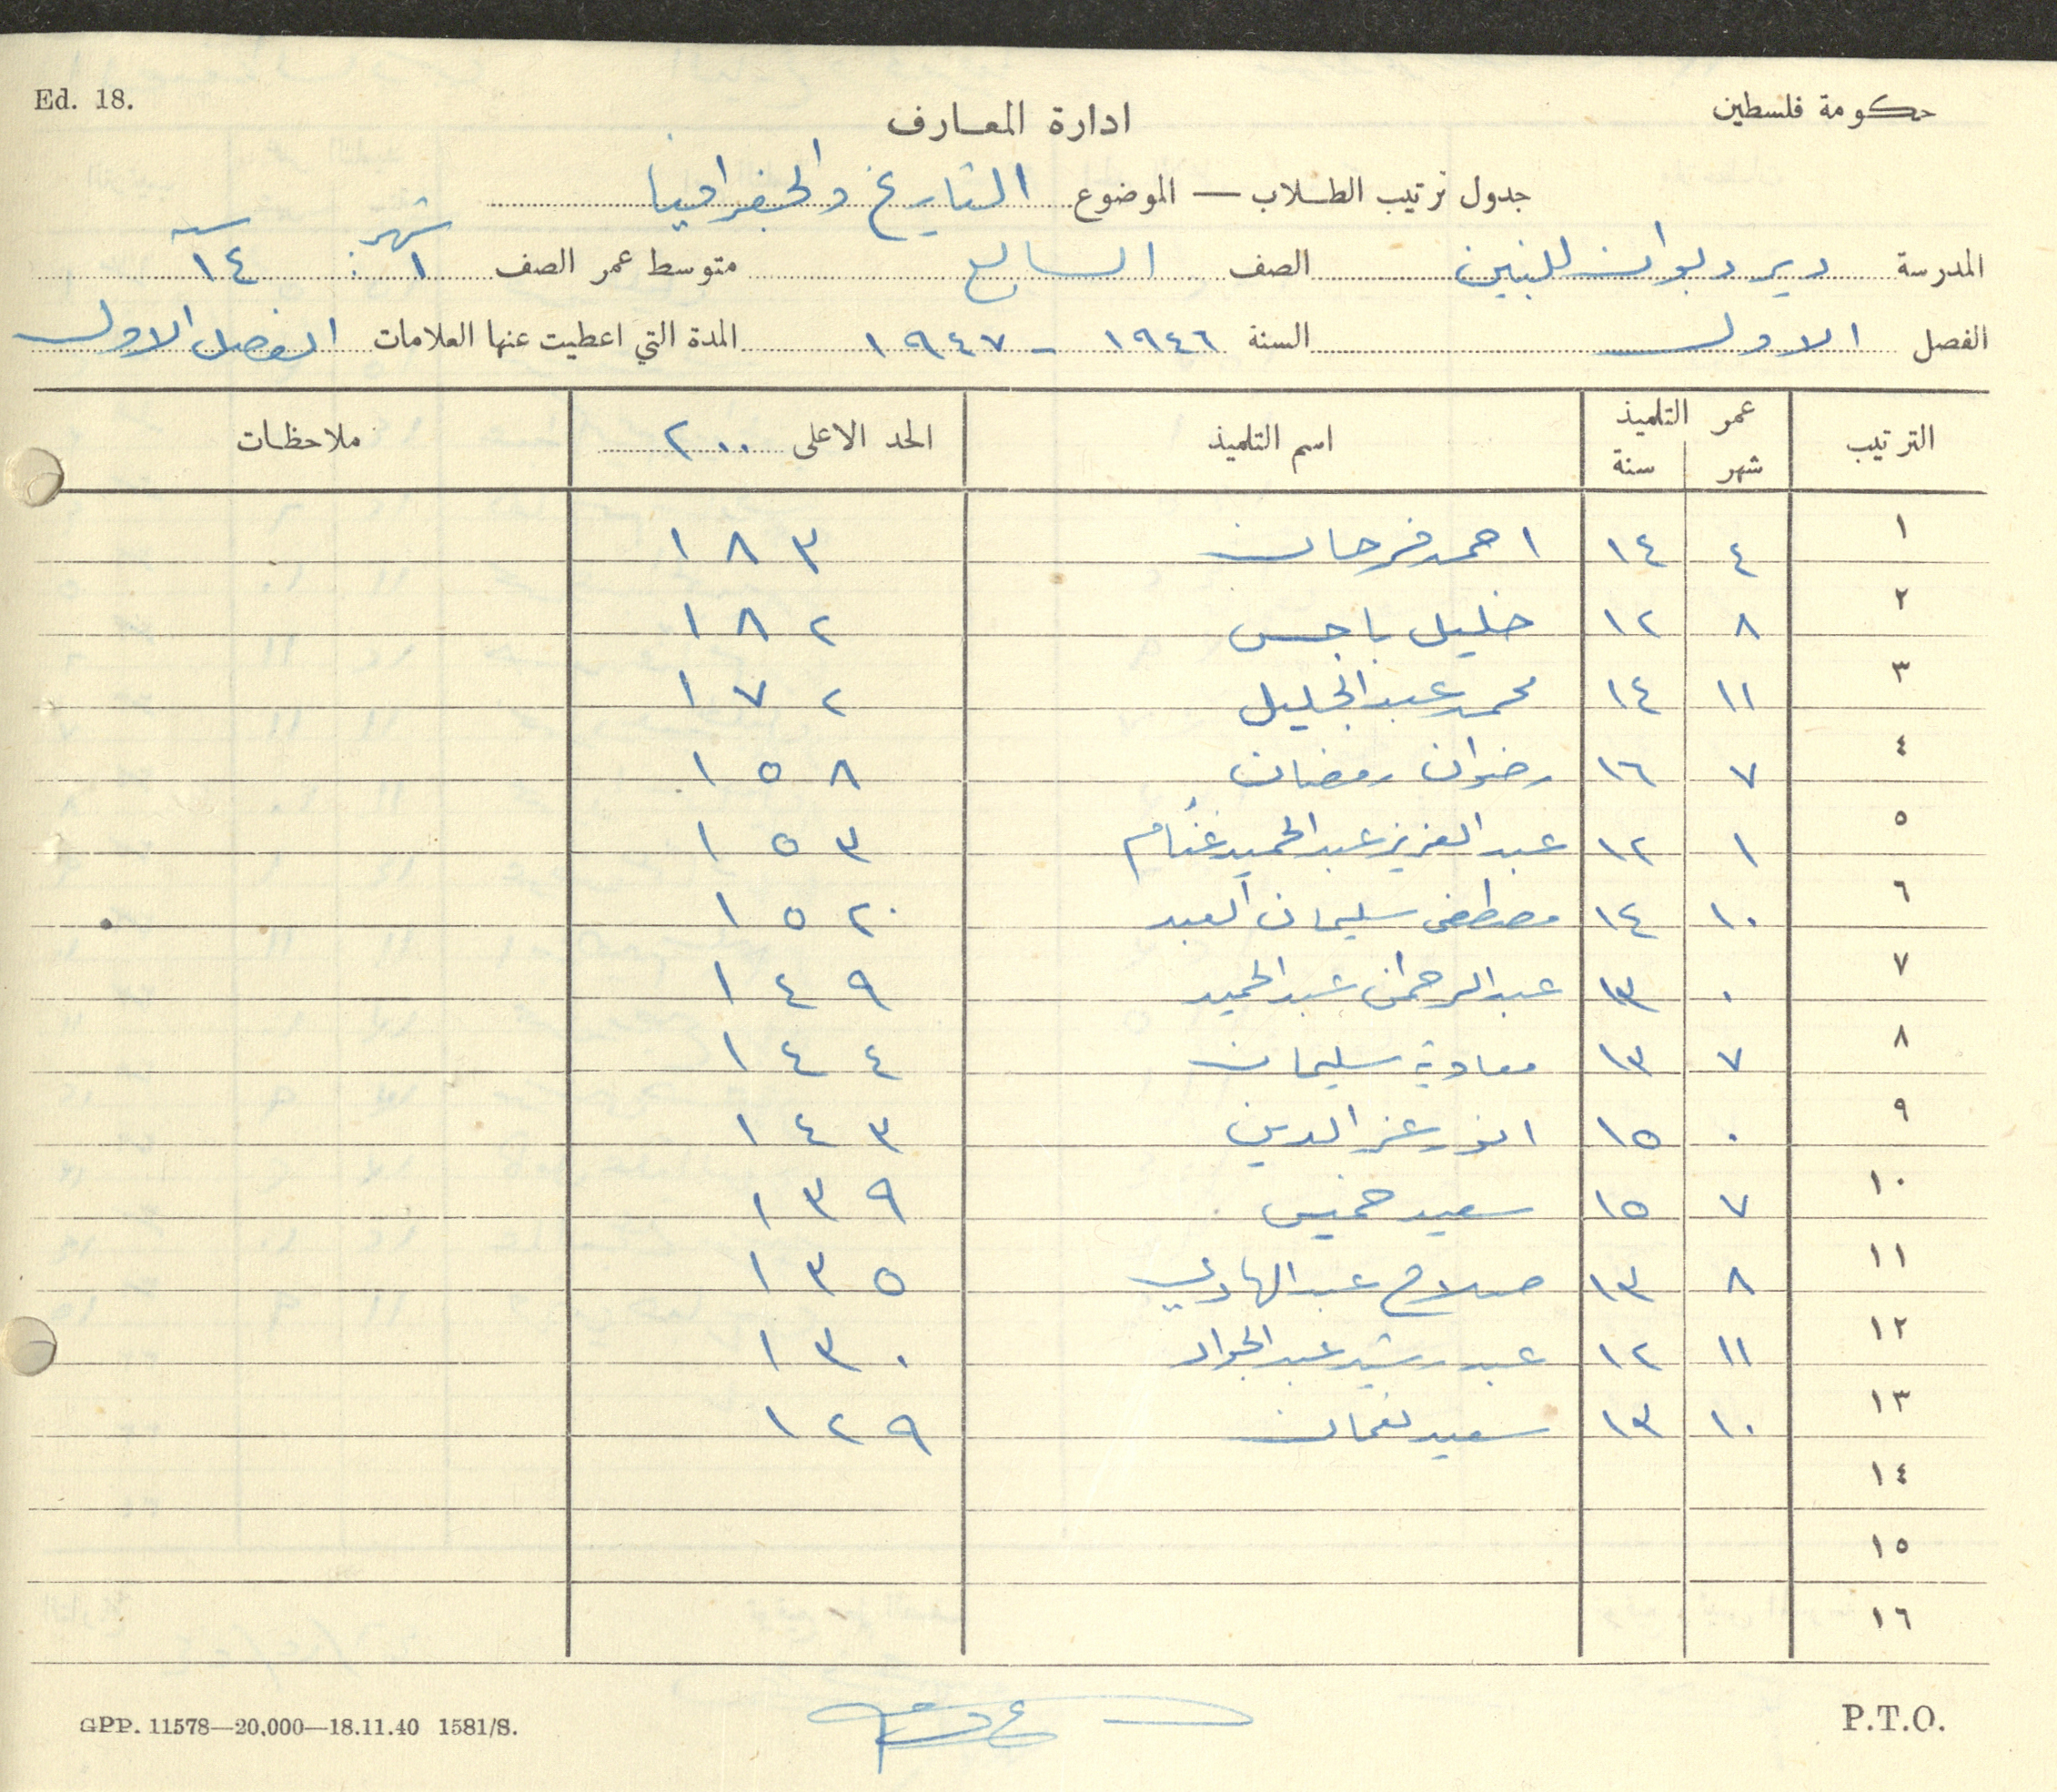 Ed. 18.
حكومة فلسطين
ادارة المعارف
جدول ترتيب الطلاب — الموضوع التاريخ والجغرافيا
المدرسة دير دبوان للبنين الصف السابع متوسط عمر الصف ١ شهر : ١٤ سنة
الفصل الاول السنة ١٩٤٦ - ١٩٤٧ المدة التي اعطيت عنها العلامات الفصل الاول
الترتيب عمر التلميذ اسم التلميذ الحد الاعلى ٢٠٠ ملاحظات
شهر سنة
١ ٤ ١٤ احمد فرحان ١٨٣
٢ ٨ ١٢ خليل باجس ١٨٢
٣ ١١ ١٤ محمد عبد الجليل ١٧٢
٤ ٧ ١٦ رضوان رمضان ١٥٨
٥ ١ ١٢ عبد العزيز عبد الحميد غنام ١٥٣
٦ ١٠ ١٤ مصطفى سليمان العبد ١٥٢
٧ ٠ ١٣ عبد الرحمن عبد الحميد ١٤٩
٨ ٧ ١٣ معاوية سليمان ١٤٤
٩ ٠ ١٥ انور عز الدين ١٤٣
١٠ ٧ ١٥ سعيد خميس ١٣٩
١١ ٨ ١٣ صلاح عبد الهادي ١٣٥
١٢ ١١ ١٢ عبد رشيد عبد الجواد ١٣٠
١٣ ١٠ ١٣ سعيد نعمان ١٢٩
١٤
١٥
١٦
GPP. 11578—20,000—18.11.40 1581/S.
P.T.O.